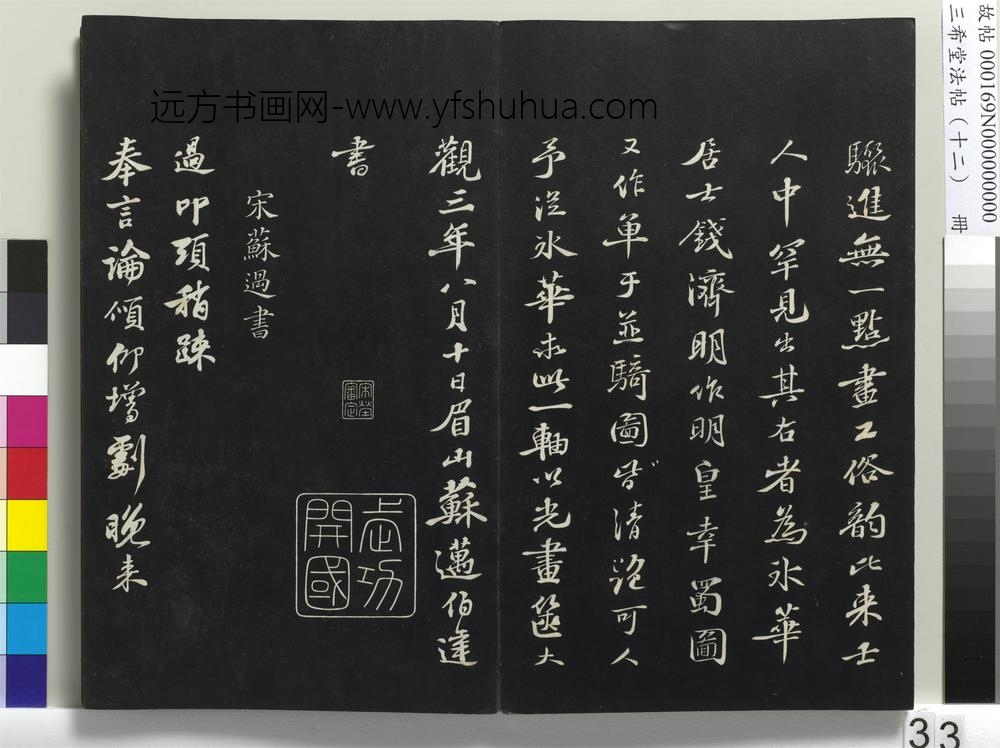 驟進無一點畫工俗韵比来士
人中罕見出其右者為氷華
居士錢濟明作明皇幸蜀圖
又作單于並騎圖皆清絕可人
予從氷華求此一軸以光畫篋大
觀三年八月十日眉山蘇邁伯達
書
宋蘇過書
過叩頭稍疎
奉言論傾仰增劇晚来
武功開國
远方书画网-www.yfshuhua.com
故帖 000169N000000000
三希堂法帖（十二） 冊
33